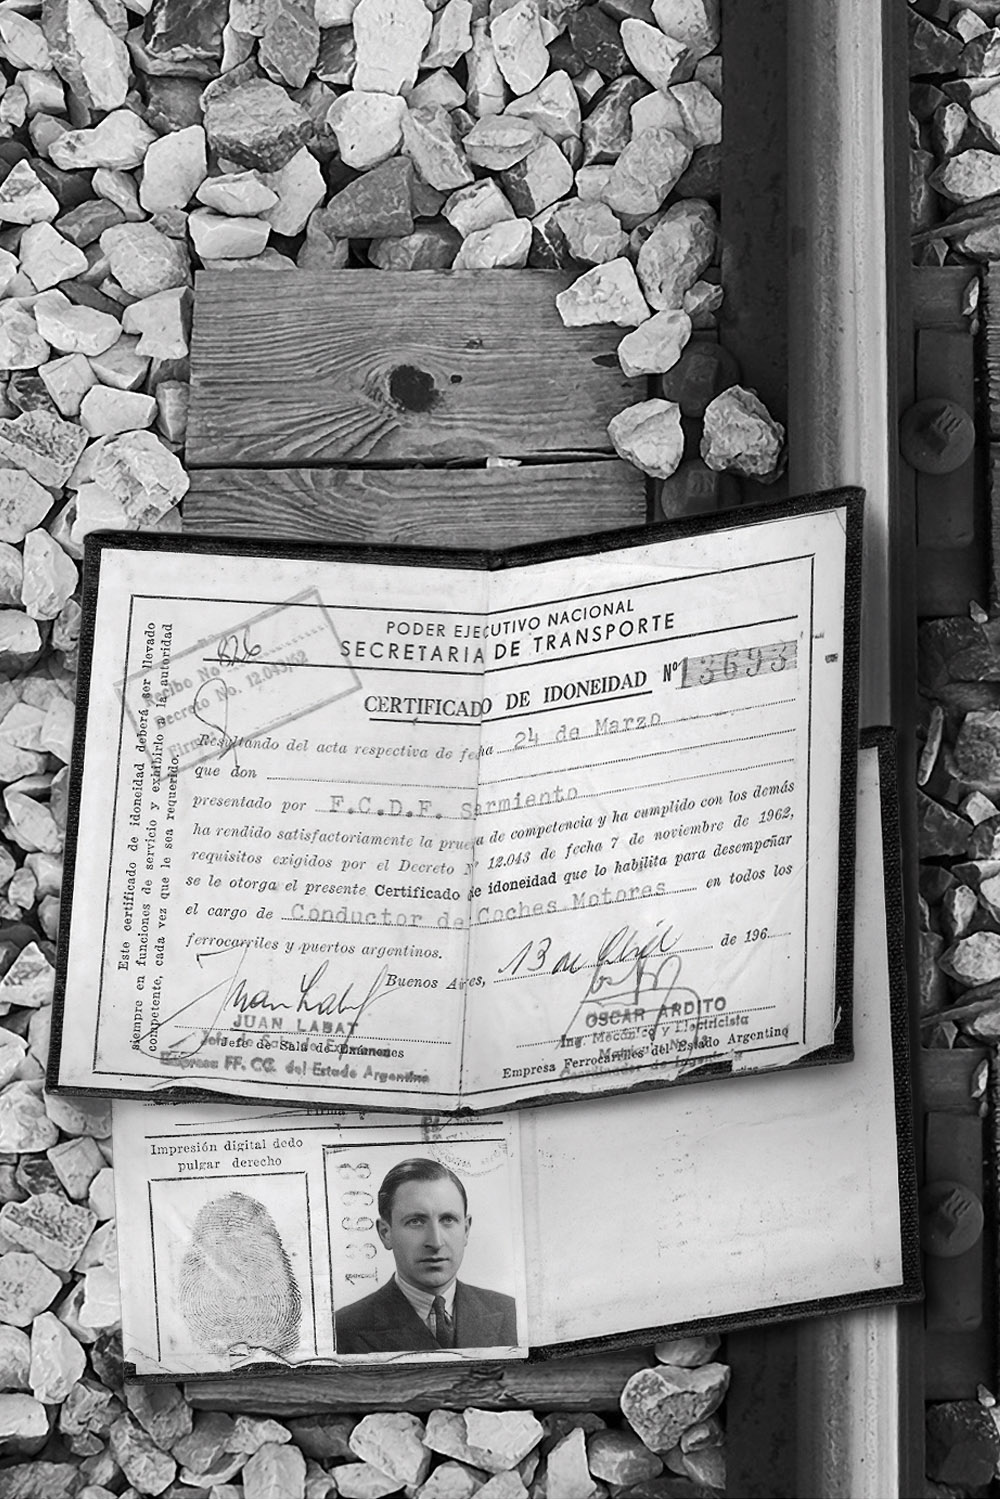 PODER EJECUTIVO NACIONAL
SECRETARIA DE TRANSPORTE
826
Recibo No
Decreto No. 12.043/62
Firma
CERTIFICADO DE IDONEIDAD Nº 13693
Resultando del acta respectiva de fecha 24 de Marzo
que don
presentado por F.C.D.F. Sarmiento
ha rendido satisfactoriamente la prueba de competencia y ha cumplido con los demás
requisitos exigidos por el Decreto Nº 12.043 de fecha 7 de noviembre de 1962,
se le otorga el presente Certificado de idoneidad que lo habilita para desempeñar
el cargo de Conductor de Coches Motores en todos los
ferrocarriles y puertos argentinos.
Buenos Aires, 13 de Abril de 196
Juan Labat
JUAN LABAT
Jefe de Sala de Exámenes
Empresa FF. CC. del Estado Argentino
OSCAR ARDITO
Ing. Mecánico y Electricista
Empresa Ferrocarriles del Estado Argentino
Este certificado de idoneidad deberá ser llevado
siempre en funciones de servicio y exhibirlo a la autoridad
competente, cada vez que le sea requerido.
Firma
Impresión digital dedo
pulgar derecho
13693